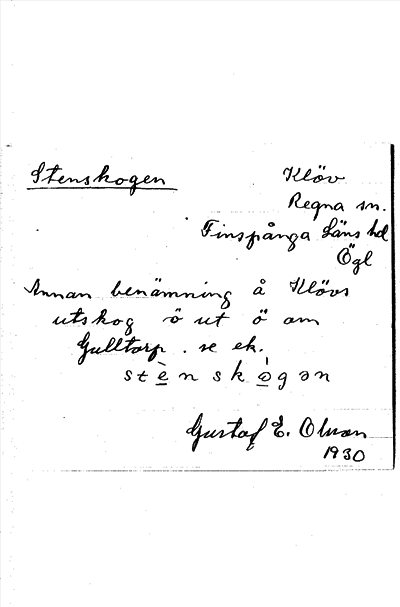 Stenskogen Klöv
Regna sn.
Finspånga Läns hd
Ögl
Annan benämning å Klövs
utskog ö ut ö om
Gulltorp. se ek.
stè̱nskò̱gən
Gustaf E. Olsson
1930